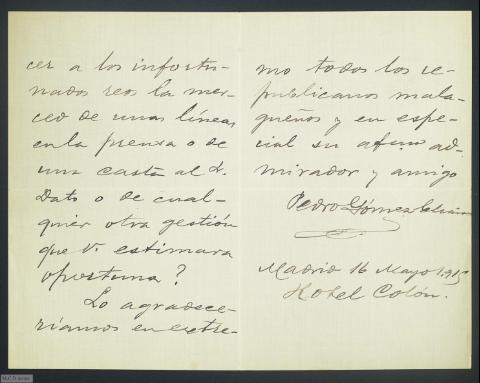 cer a los infortu-
nados reos la mer-
ced de unas líneas
en la prensa o de
una carta al Sr.
Dato o de cual-
quier otra gestión
que V. estimara
oportuna?
Lo agradece-
ríamos en extre-
mo todos los re-
publicanos mala-
gueños y en espe-
cial su afmo ad-
mirador y amigo
Pedro Gómez
Madrid 16 Mayo 1915
Hotel Colón.